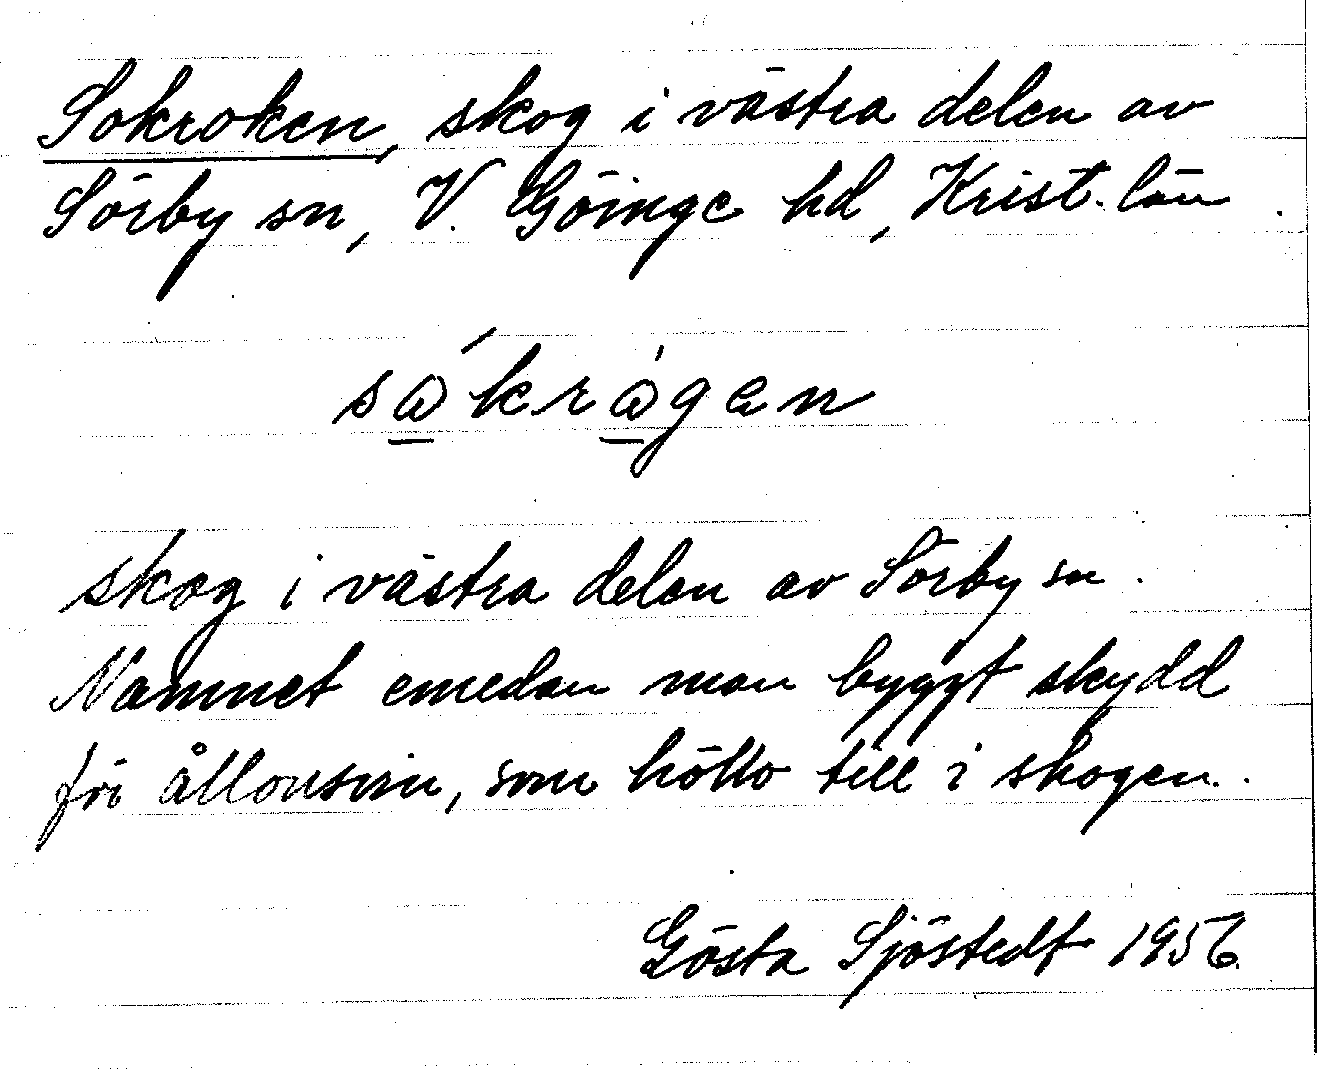 Sokroken, skog i västra delen av
Sörby sn, V. Göinge hd, Krist. län.
sákràgen
skog i västra delen av Sörby sn.
Namnet emedan man byggt skydd
för ållonsvin, som höllo till i skogen.
Gösta Sjöstedt 1956.